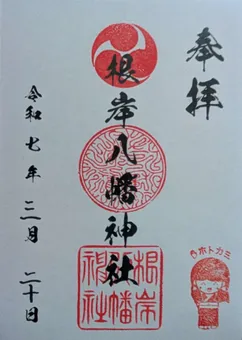 奉拝
根岸八幡神社
令和七年三月二十日
根岸
八幡
神社